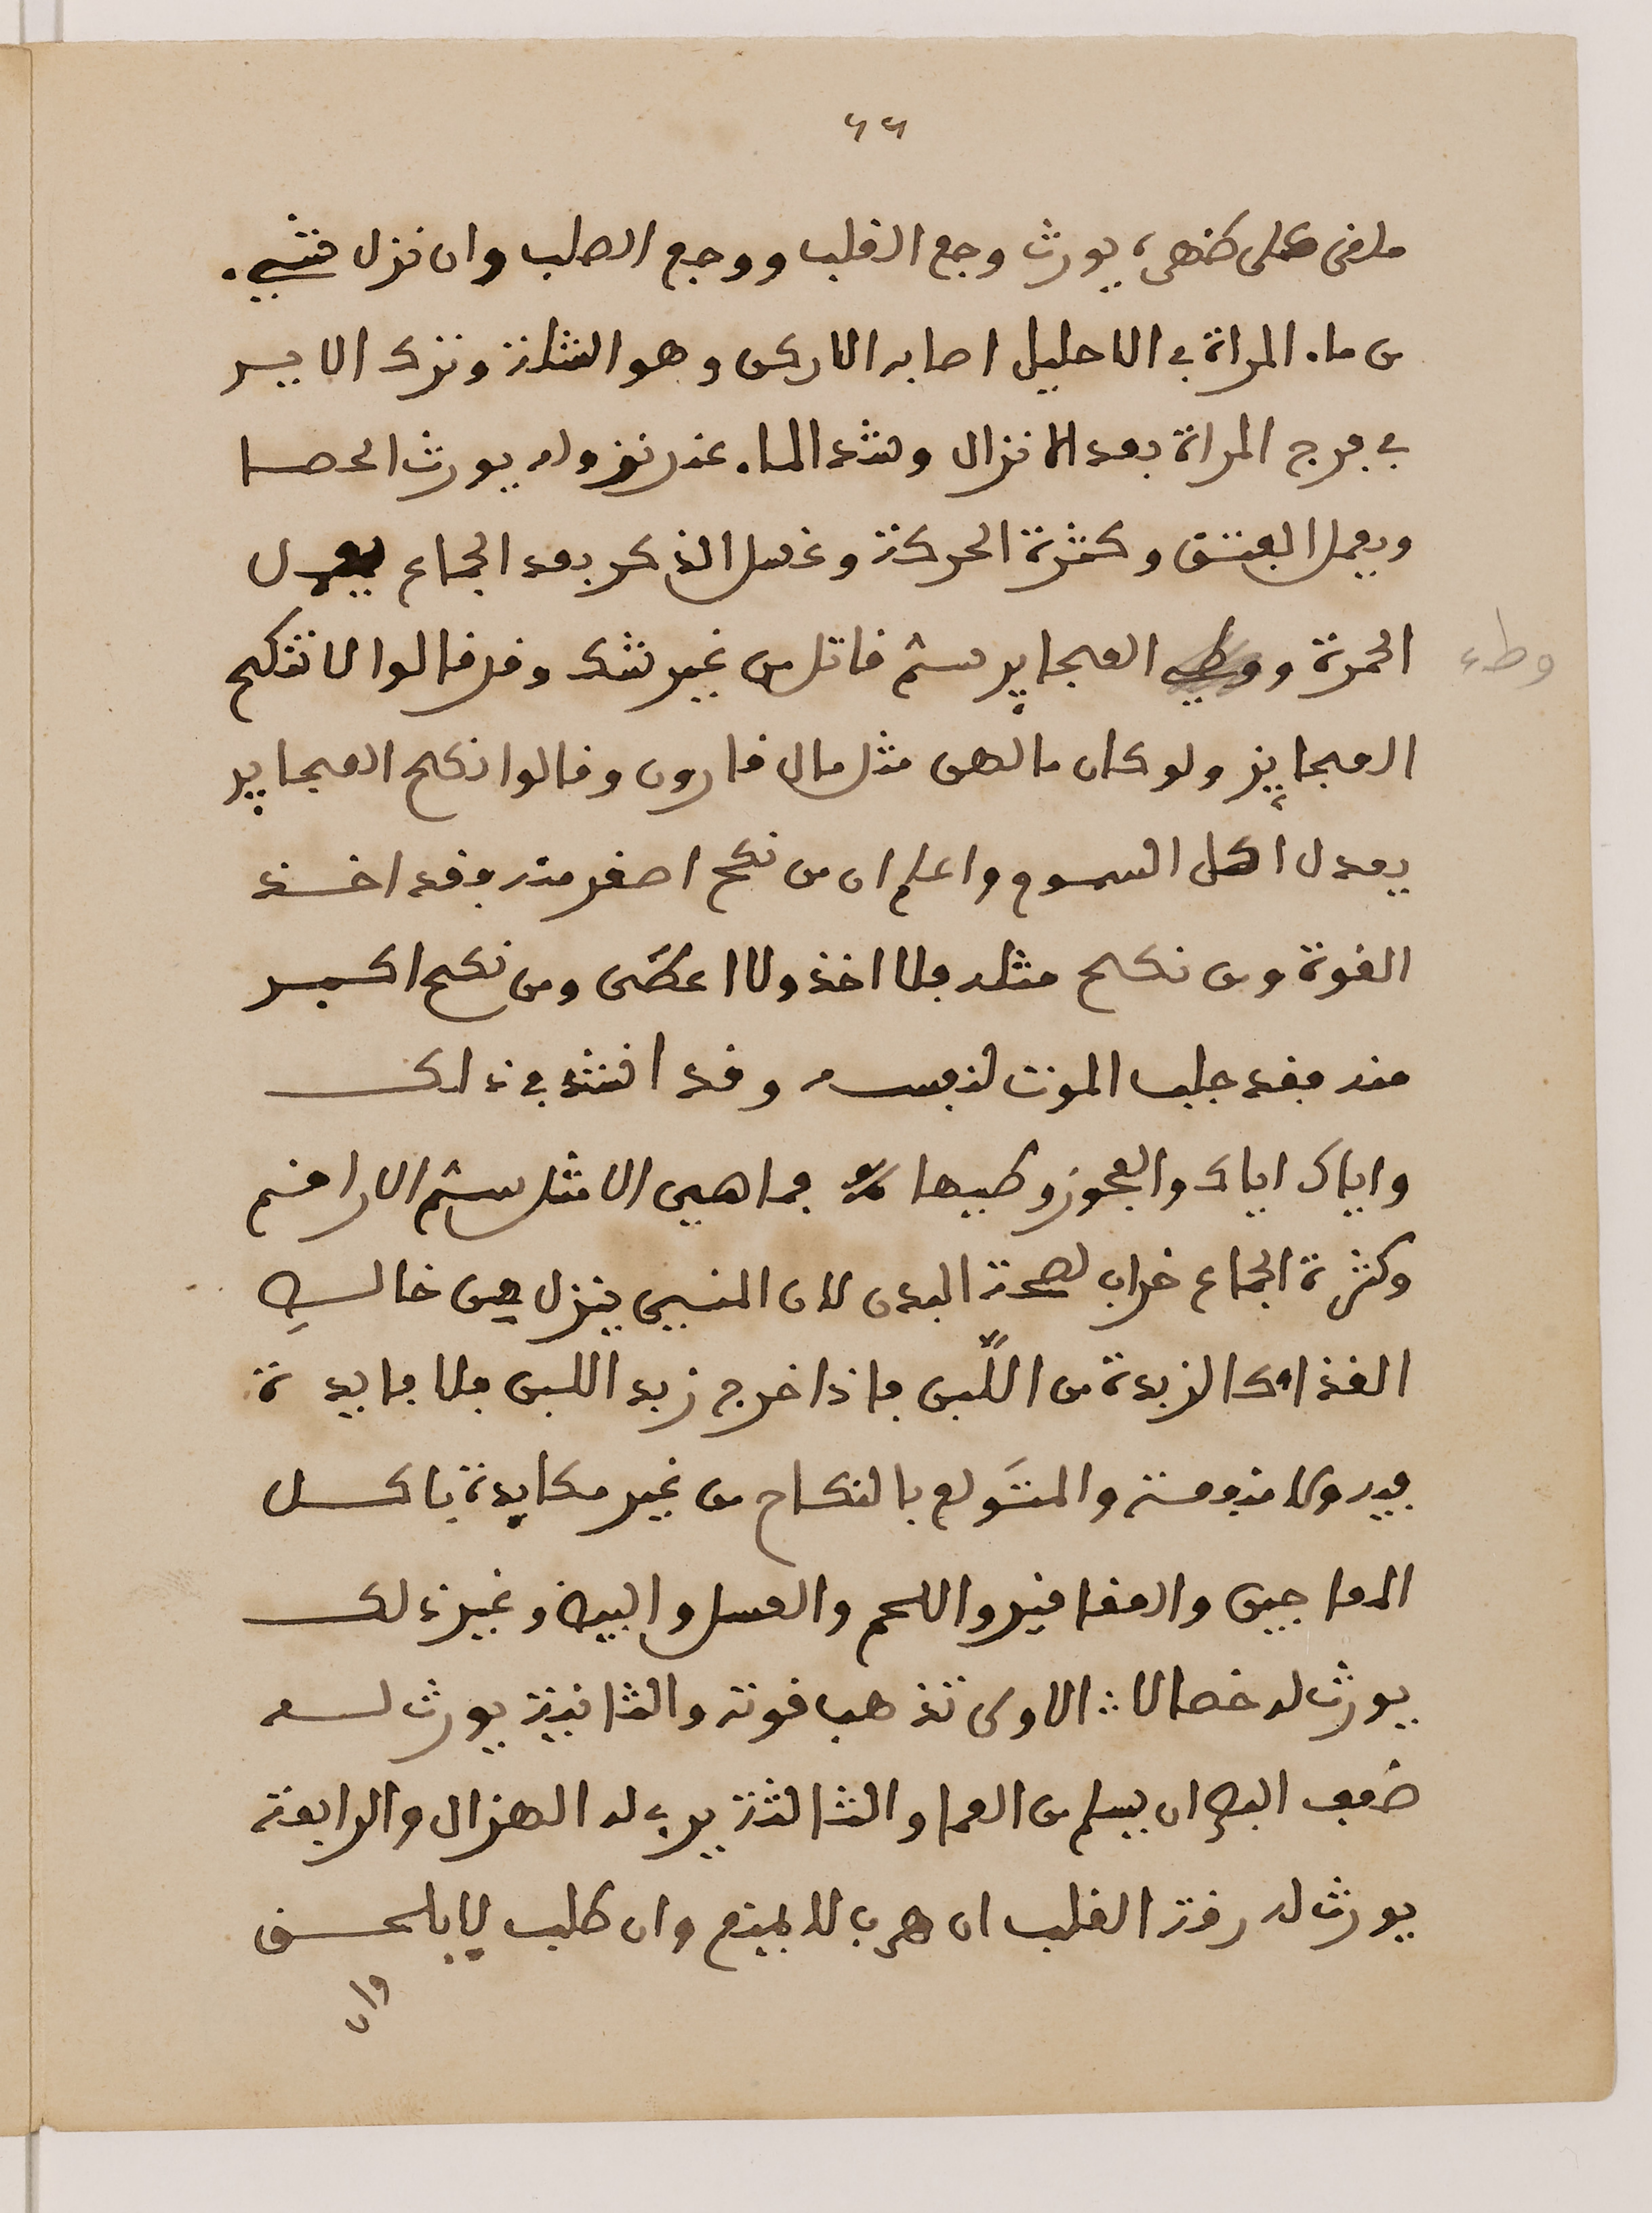 ٦٦
ملفى على ظهره يورث وجع القلب ووجع الصلب وان نزل شيء
من ماء المراة في الاحليل اصابه الاركن وهو الشلاز وترك الايـر
في فرج المراة بعد الانزال وشد الماء عند نزوله يورث الحصا
ويعمل الفتق وكثرة الحركة وغسل الذكر بعد الجماع يعمل
الحمرة ووطي العجايز سم قاتل من غير شك وقد قالوا لا تنكح
وطء
العجايز ولو كان مالهن مثل مال قارون وقالوا نكح العجايز
يعدل اكل السموم واعلم ان من نكح اصغر منه فقد اخـذ
القوة ومن نكح مثله فلا اخذ ولا اعطى ومن نكح اكبـر
منه فقد جلب الموت لنفسه وقد انشد في ذلك
واياك اياك والعجوز وطيها فما هي الا مثل سم الاراقم
وكثرة الجماع خراب لصحة البدن لان المني ينزل من خالـص
الغذاء كالزبدة من اللّبن فاذا خرج زبد اللبن فلا فايدة
فيه ولا منفعة والمتَولع بالنكاح من غير مكايدة باكـل
المعاجين والعقاقير واللحم والعسل والبيض وغير ذلك
يورث له خصالا الاولى تذهب قوته والثانية يورث لـه
ضعف البصر ان يسلم من العما والثالثة يربي له الهزال والرابعة
يورث له رقة القلب ان هرب لا يمنع وان طلب لا يلحـق
وان